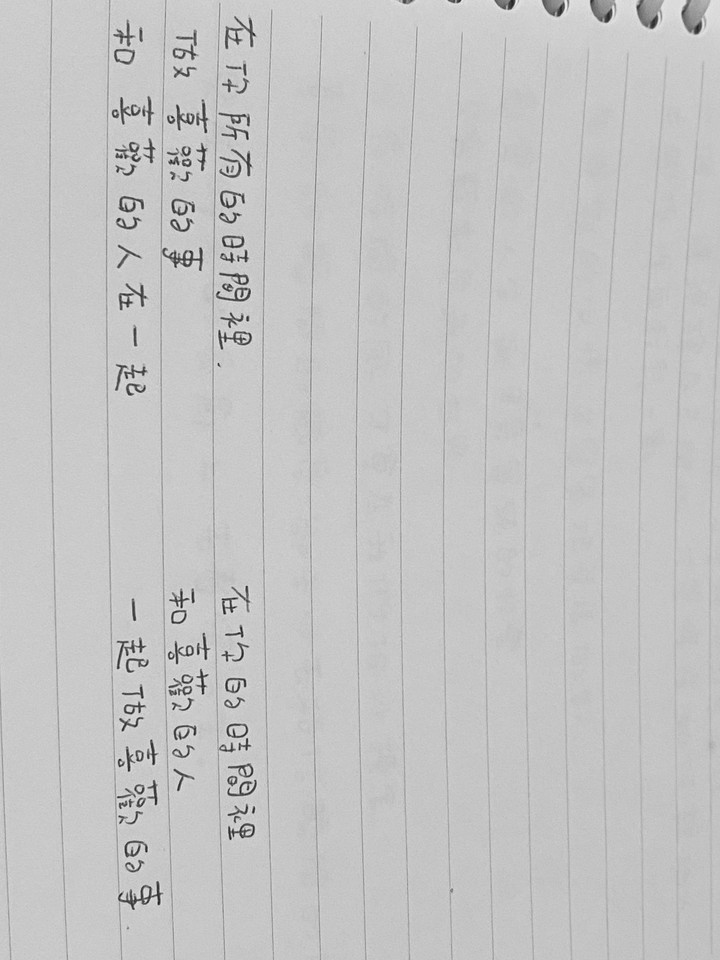 在你所有的時間裡.
做喜歡的事
和喜歡的人在一起
在你的時間裡
和喜歡的人
一起做喜歡的事.